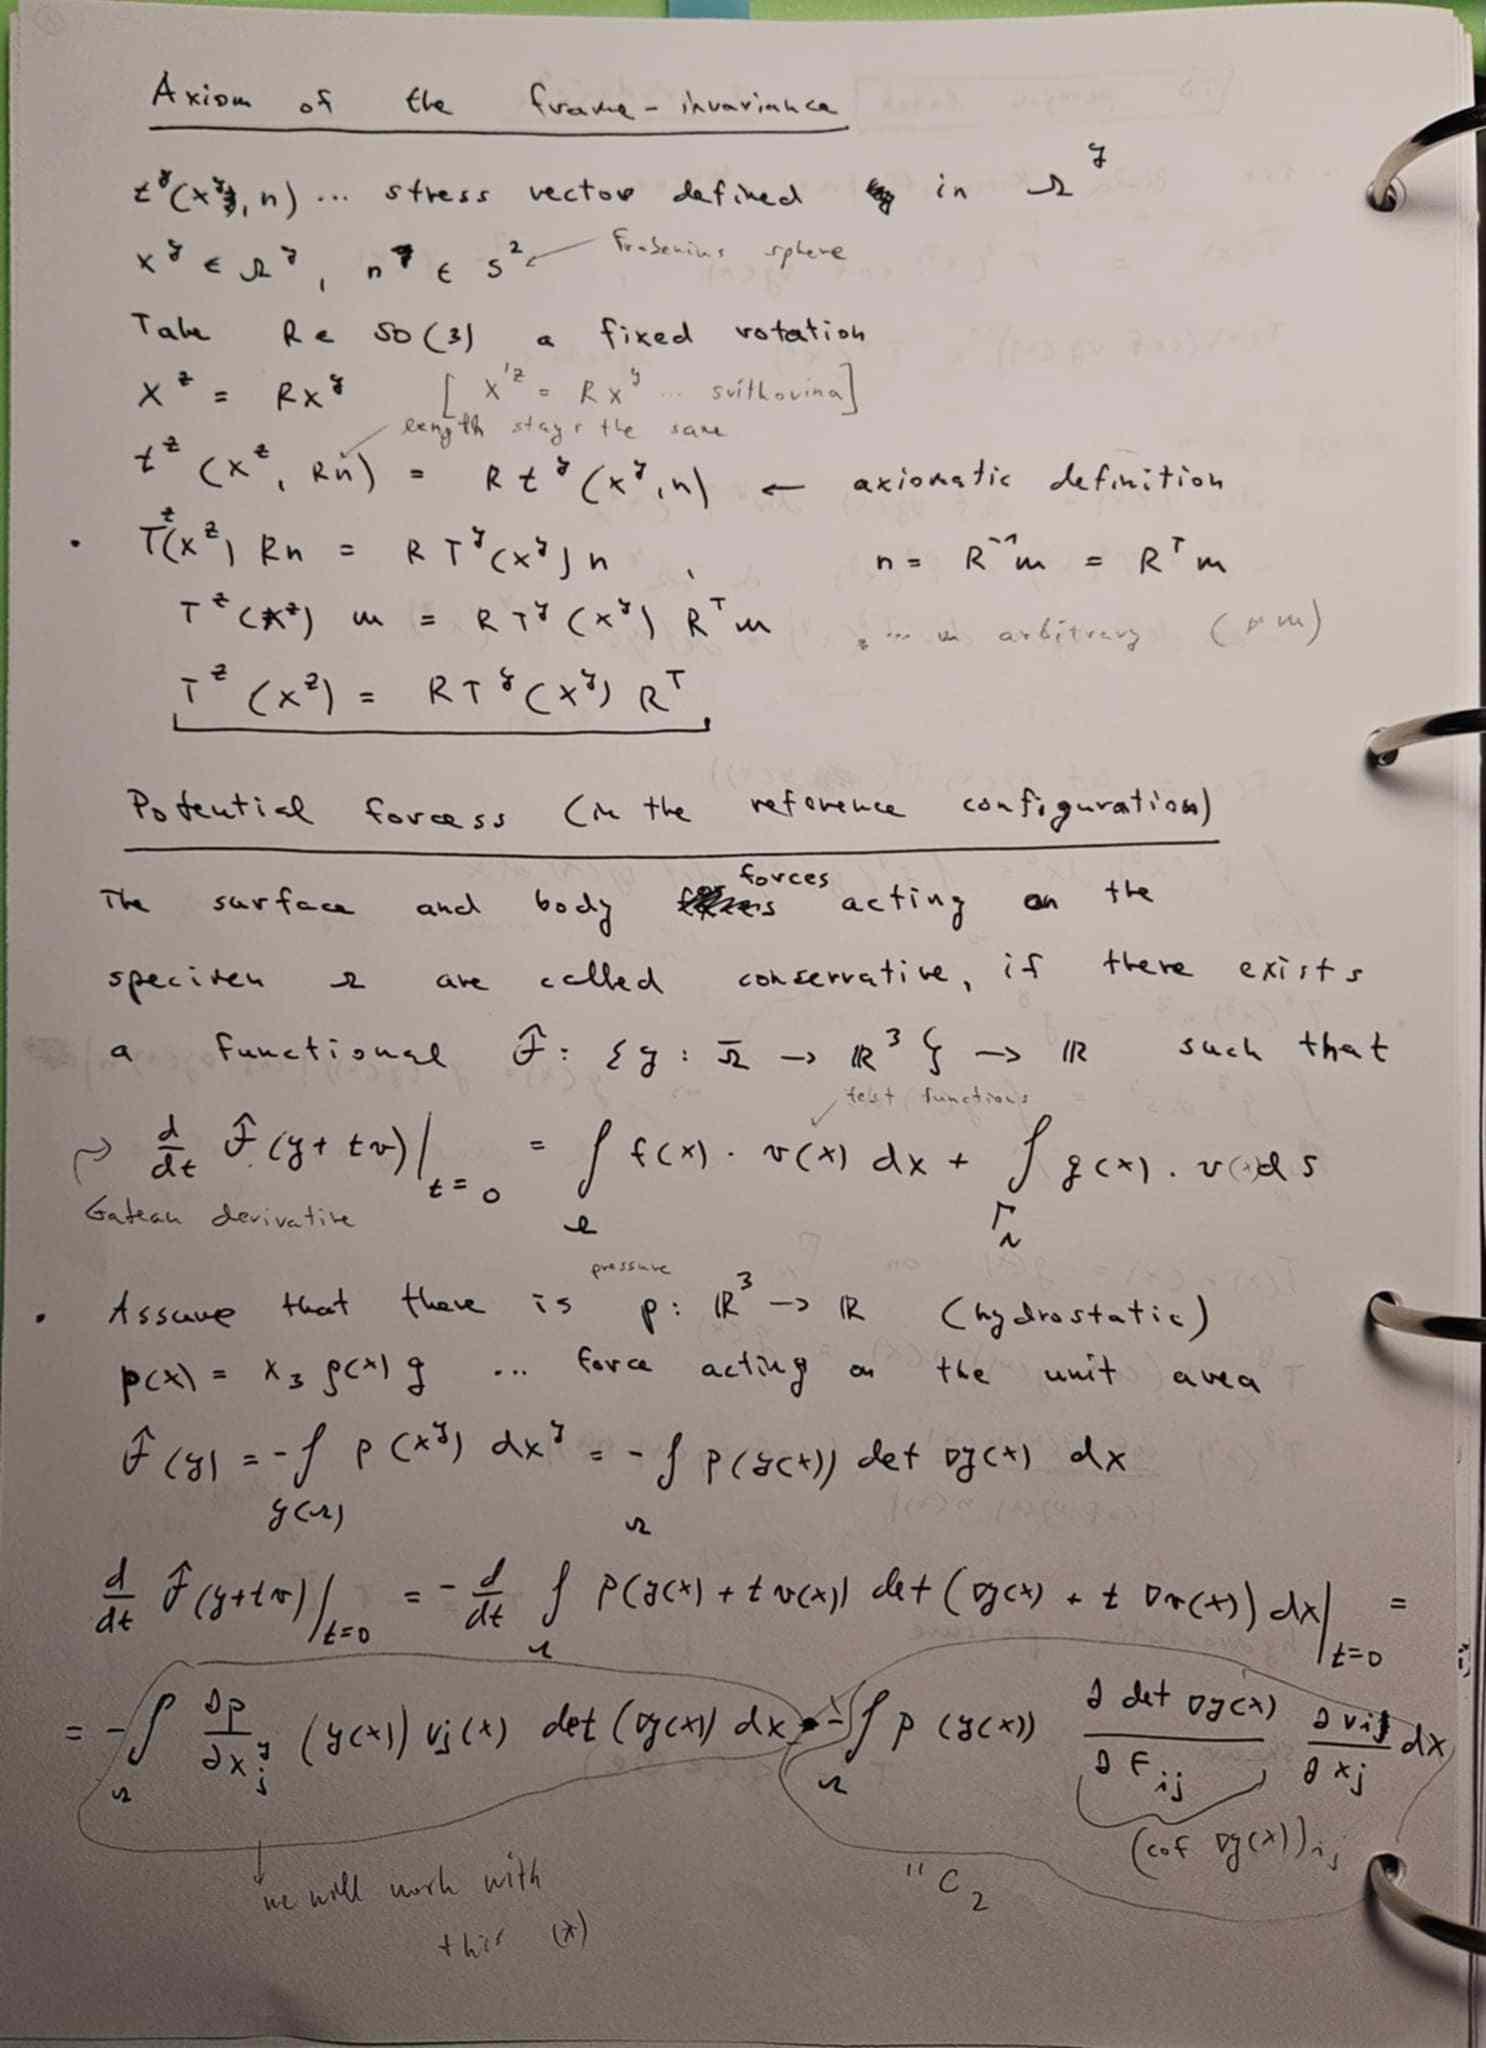 Axiom of the frame-invariance
t^y(x^y, n) ... stress vector defined in Ω^y
x^y ∈ Ω^y, n^y ∈ S^2 ← Frobenius sphere
Take R ∈ SO(3) a fixed rotation
x^z = Rx^y [x'^z = Rx^y ... svithovina]
length stays the same
t^z (x^z, Rn) = R t^y (x^y, n) ← axiomatic definition
• T^z(x^z) Rn = R T^y(x^y) n , n = R^-1 m = R^T m
T^z(x^z) m = R T^y (x^y) R^T m ... m arbitrary (∀ m)
T^z (x^z) = R T^y (x^y) R^T
Potential forcess (in the reference configuration)
The surface and body forces acting on the
specimen Ω are called conservative, if there exists
a functional Ĵ: {y : Ω̄ → ℝ^3} → ℝ such that
test functions
d/dt Ĵ(y + tv)|_{t=0} = ∫_Ω f(x) · v(x) dx + ∫_{Γ_N} g(x) · v(x) dS
Gateau derivative
pressure
• Assume that there is p: ℝ^3 → ℝ (hydrostatic)
p(x) = x_3 ρ(x) g ... force acting on the unit area
Ĵ(y) = -∫_{y(Ω)} p(x^y) dx^y = -∫_Ω p(y(x)) det ∇y(x) dx
d/dt Ĵ(y+tv)|_{t=0} = -d/dt ∫_Ω p(y(x) + t v(x)) det (∇y(x) + t ∇v(x)) dx|_{t=0} =
= -∫_Ω ∂p/∂x_j^y (y(x)) v_j(x) det (∇y(x)) dx - ∫_Ω p (y(x)) ∂ det ∇y(x)/∂F_ij ∂v_i/∂x_j dx
(cof ∇y(x))_ij
"C_2
we will work with
this (*)